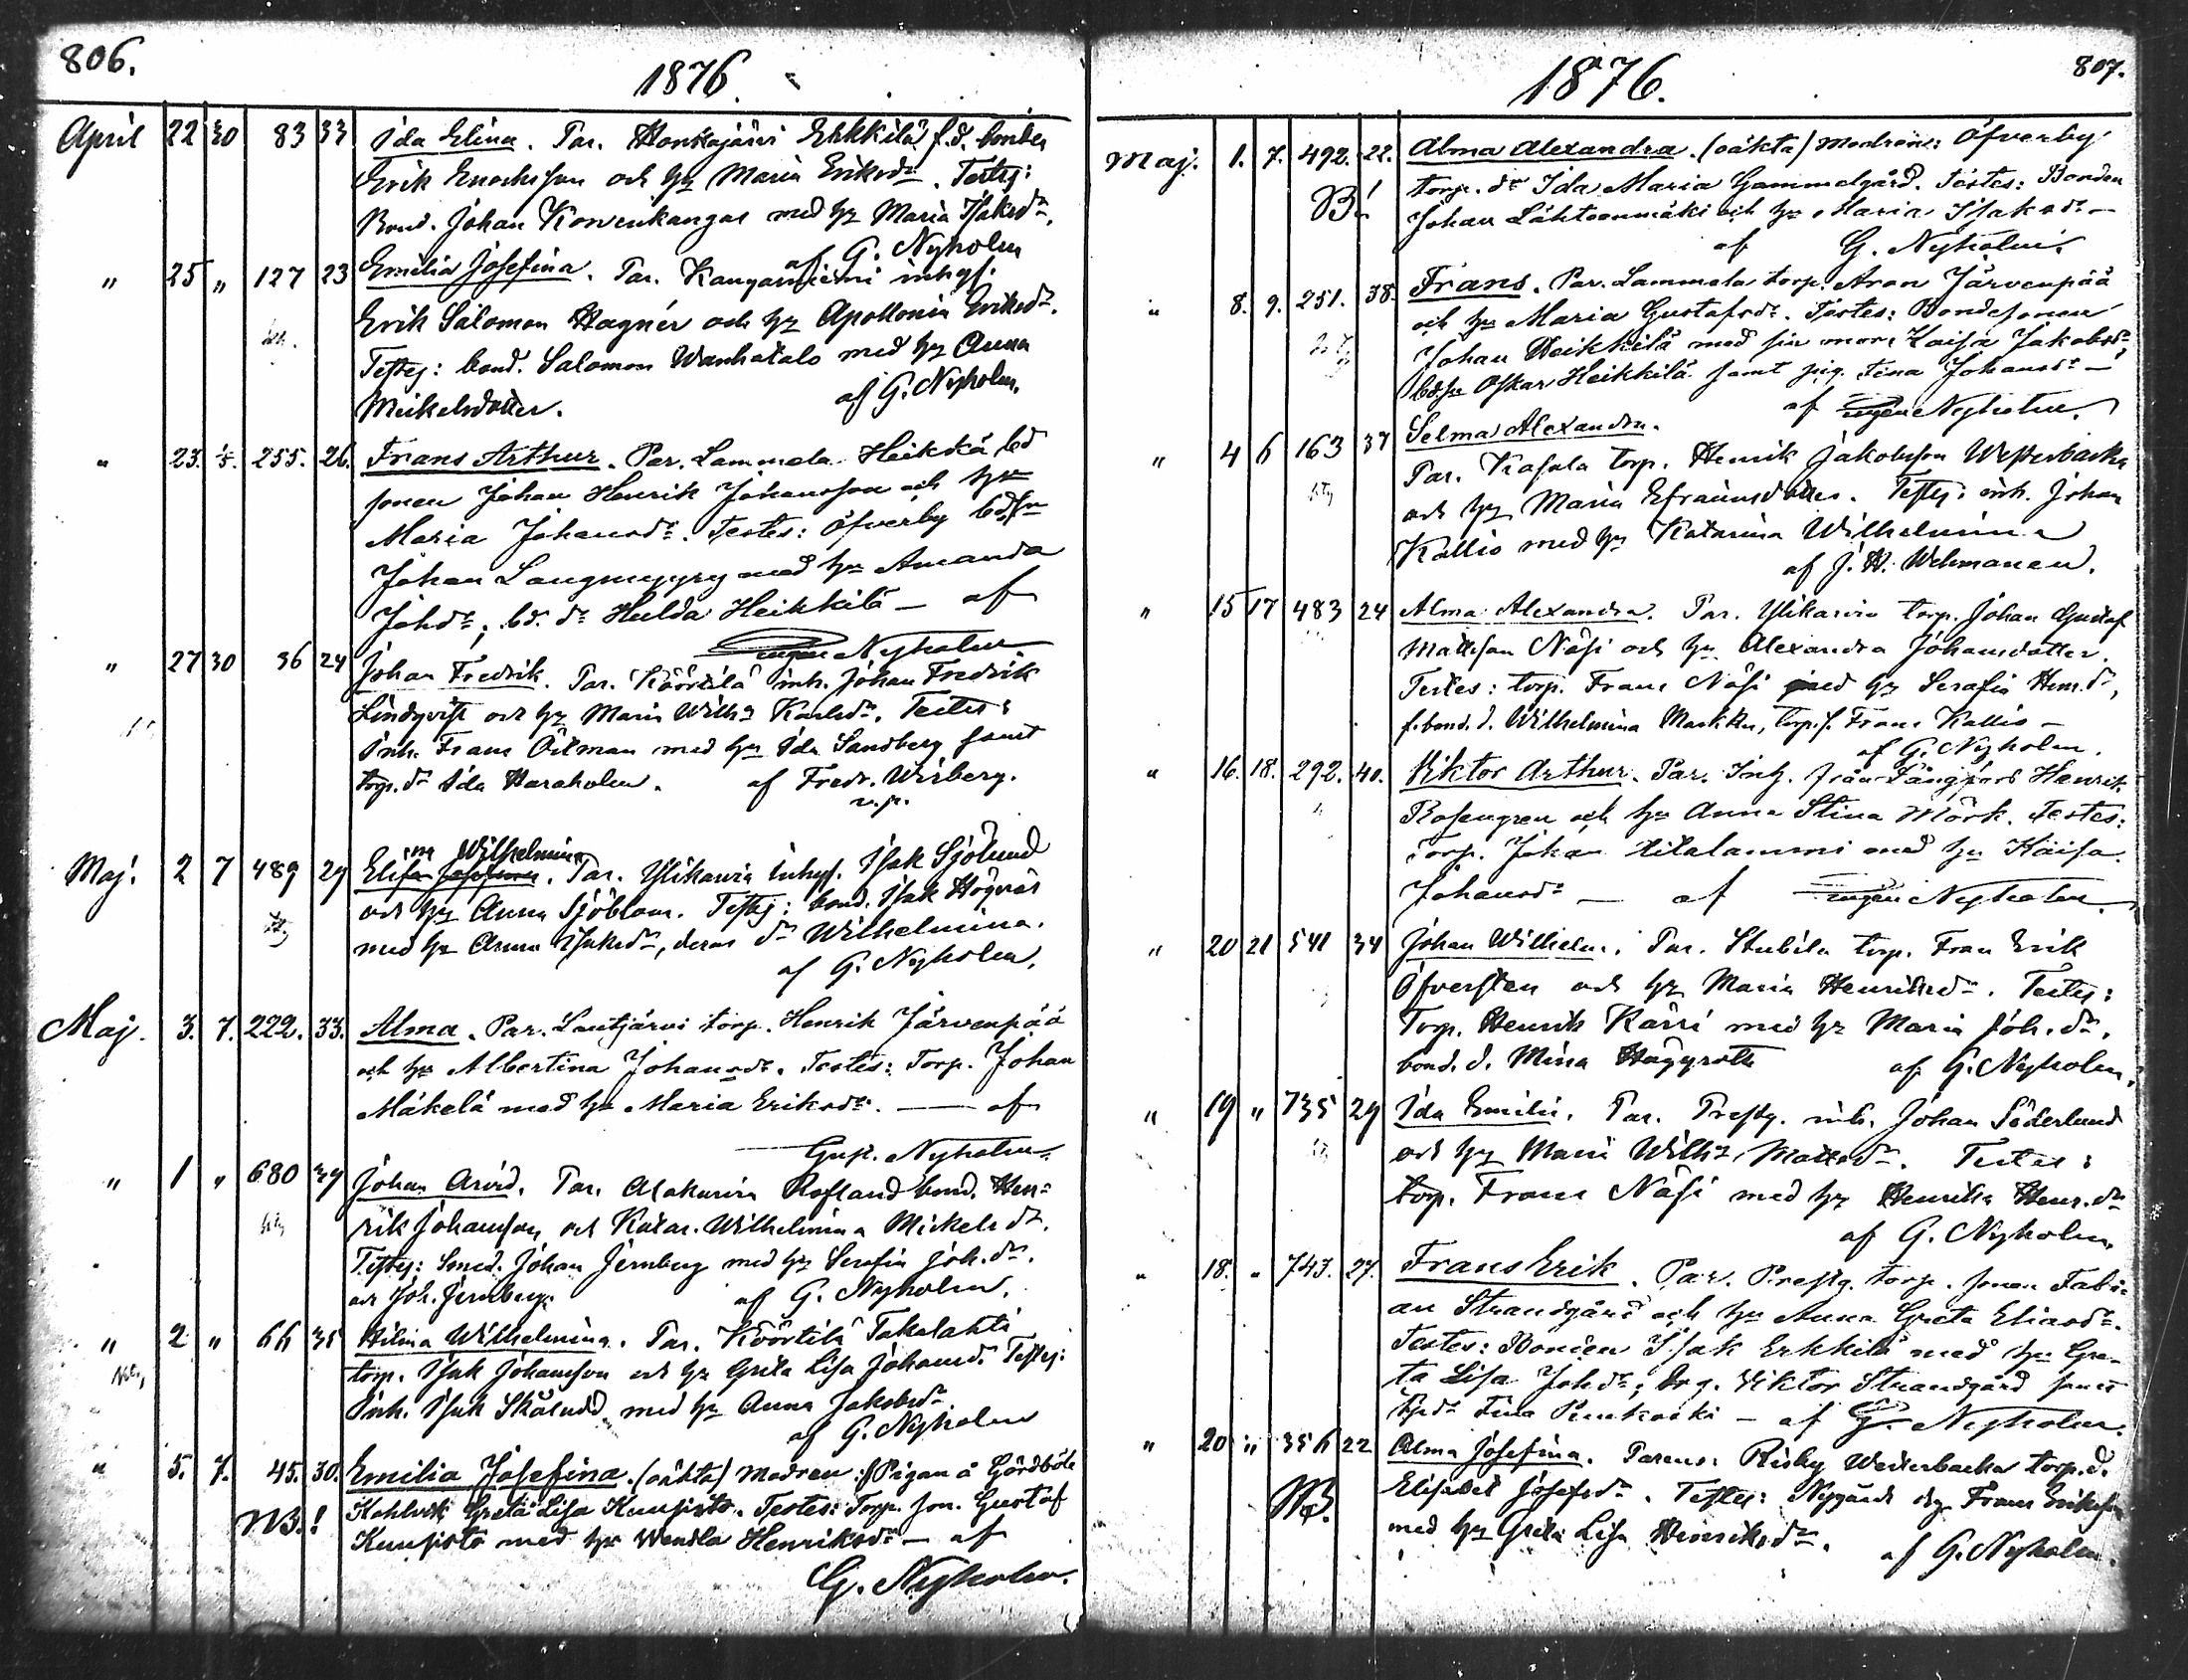 806.
1876.
April 22 30 83 33 Ida Elina. Par. Honkajärvi Erkkilä f.d. bonden
Erik Enochsson och hu Maria Eriksdr. Testes:
Bond. Johan Korvenkangas med hu Maria Isaksdr.
af G. Nyholm
" 25 " 127 23 Emilia Josefina. Par. Kangasniemi inhys.
Erik Salomon Hagnér och hu Apollonia Eriksdr.
Testes: bond. Salomon Wanhatalo med hu Anna
Mickelsdotter. af G. Nyholm.
" 23. 1/5. 255. 26. Frans Arthur. Par. Lammela Heikkilä bd
sonen Johan Henrik Johansson och hu
Maria Johansdr. Testes: Öfverby bdsn
Johan Långmyyry med hu Amanda
Johdr; bd. dr Hulda Heikkilä — af
Nyholm
" 27 30 36 24 Johan Fredrik. Par. Köörtilä inh. Johan Fredrik
Lindqvist och hu Maria Wilha Karlsdr. Testes:
Inh. Frans Öitman med hu Ida Sandberg samt
torp. dr Ida Haraholm. af Fredr. Wiberg.
v.p.
Maj. 2 7 489 29 Elina Wilhelmina. Par. Ylikarvia Inhys. Isak Sjölund
och hu Anna Sjöblom. Testes: bond. Isak Högnäs
med hu Anna Isaksdr, deras dr Wilhelmina.
af G. Nyholm.
Maj. 3. 7. 222. 33. Alma. Par. Lautjärvi torp. Henrik Järvenpää
och hu Albertina Johansdr. Testes: Torp. Johan
Mäkelä med hu Maria Eriksdr. — af
Gust. Nyholm
" 1 " 680 39 Johan Arvid. Par. Alakarvia Rosland bond. Hen=
rik Johansson och Katar. Wilhelmina Mickelsdr.
Testes: Smed. Johan Jernberg med hu Serafia Joh.dr.
och Joh. Jernberg. af G. Nyholm.
" 2 " 66 35 Hilma Wilhelmina. Par. Köörtilä Takalahti
torp. Isak Johansson och hu Greta Lisa Johansd. Testes:
Inh. Isak Sköludd med hu Anna Jakobsdr
af G. Nyholm
" 5. 7. 45. 30. Emilia Josefina. (oäkta) Modren: Pigan å Gördböle
NB.! Greta Lisa Kuusisto. Testes: Torp. son. Gustaf
Kuusisto med hu Wendla Henriksdr — af
G. Nyholm.
1876.
807.
Maj. 1. 7. 492. 22. Alma Alexandra. (oäkta) Modren: Öfverby
NB! torp. dr Ida Maria Gammelgård. Testes: Bonden
Johan Lähteenmäki och hu Maria Isaksdr —
af G. Nyholm.
" 8. 9. 251. 38. Frans. Par. Lammela torp. Aron Järvenpää
och hu Maria Gustafsdr. Testes: Bondesonen
Johan Heikkilä med sin mor Kaisa Jakobsdr,
bdsn Oskar Heikkilä samt pig. Fina Johansdr —
af Nyholm.
" 4 6 163 37 Selma Alexandra.
Par. Kasala torp. Henrik Jakobsson Westerbacka
och hu Maria Efraimsdotter. Testes: inh. Johan
Kallio med hu Katarina Wilhelmina
af J. H. Welmanen.
" 15 17 483 24 Alma Alexandra. Par. Ylikarvia torp. Johan Gustaf
Mattsson Näsi och hu Alexandra Johansdotter.
Testes: torp. Frans Näsi med hu Serafia Henr.dr,
f. bond. d. Wilhelmina Markku, torp. s. Frans Kallio —
af G. Nyholm.
" 16. 18. 292. 40. Viktor Arthur. Par. Inh. från Långfors Henrik
Rosengren och hu Anna Stina Mörk. Testes:
Torp. Johan Riitalammi med hu Kaisa
Johansdr — af Nyholm.
" 20 21 541 34 Johan Wilhelm. Par. Stubila torp. Frans Erik
Öfversten och hu Maria Henriksdr. Testes:
Torp. Henrik Kärri med hu Maria Joh.dr,
bond. d. Mina Häggroth af G. Nyholm.
" 19 " 735 29 Ida Emilia. Par. Prestg. inh. Johan Söderlund
och hu Maria Wilha Mattsdr. Testes:
torp. Frans Näsi med hu Henrika Henr.dr
af G. Nyholm.
" 18. " 743. 27. Frans Erik. Par. Prestg. torp. sonen Fabi=
an Strandgård och hu Anna Greta Eliasdr.
Testes: Bonden Isak Erkkilä med hu Gre=
ta Lisa Johdr; drg. Viktor Strandgård samt
Fina — af G. Nyholm.
" 20 " 356 22 Alma Josefina. Parens: Risby Westerbacka torp. d.
NB. Elisabet Josefsdr. Testes: Nygårds drg Frans Eriksson
med hu Greta Lisa Henriksdr. af G. Nyholm.